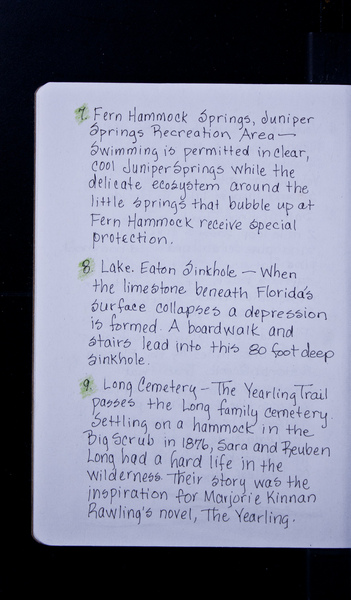 7. Fern Hammock Springs, Juniper
Springs Recreation Area —
Swimming is permitted in clear,
cool Juniper Springs while the
delicate ecosystem around the
little springs that bubble up at
Fern Hammock receive special
protection.
8. Lake Eaton Sinkhole — When
the limestone beneath Florida's
surface collapses a depression
is formed. A boardwalk and
stairs lead into this 80 foot deep
sinkhole.
9. Long Cemetery — The Yearling Trail
passes the Long family cemetery.
Settling on a hammock in the
Big Scrub in 1876, Sara and Reuben
Long had a hard life in the
wilderness. Their story was the
inspiration for Marjorie Kinnan
Rawling's novel, The Yearling.